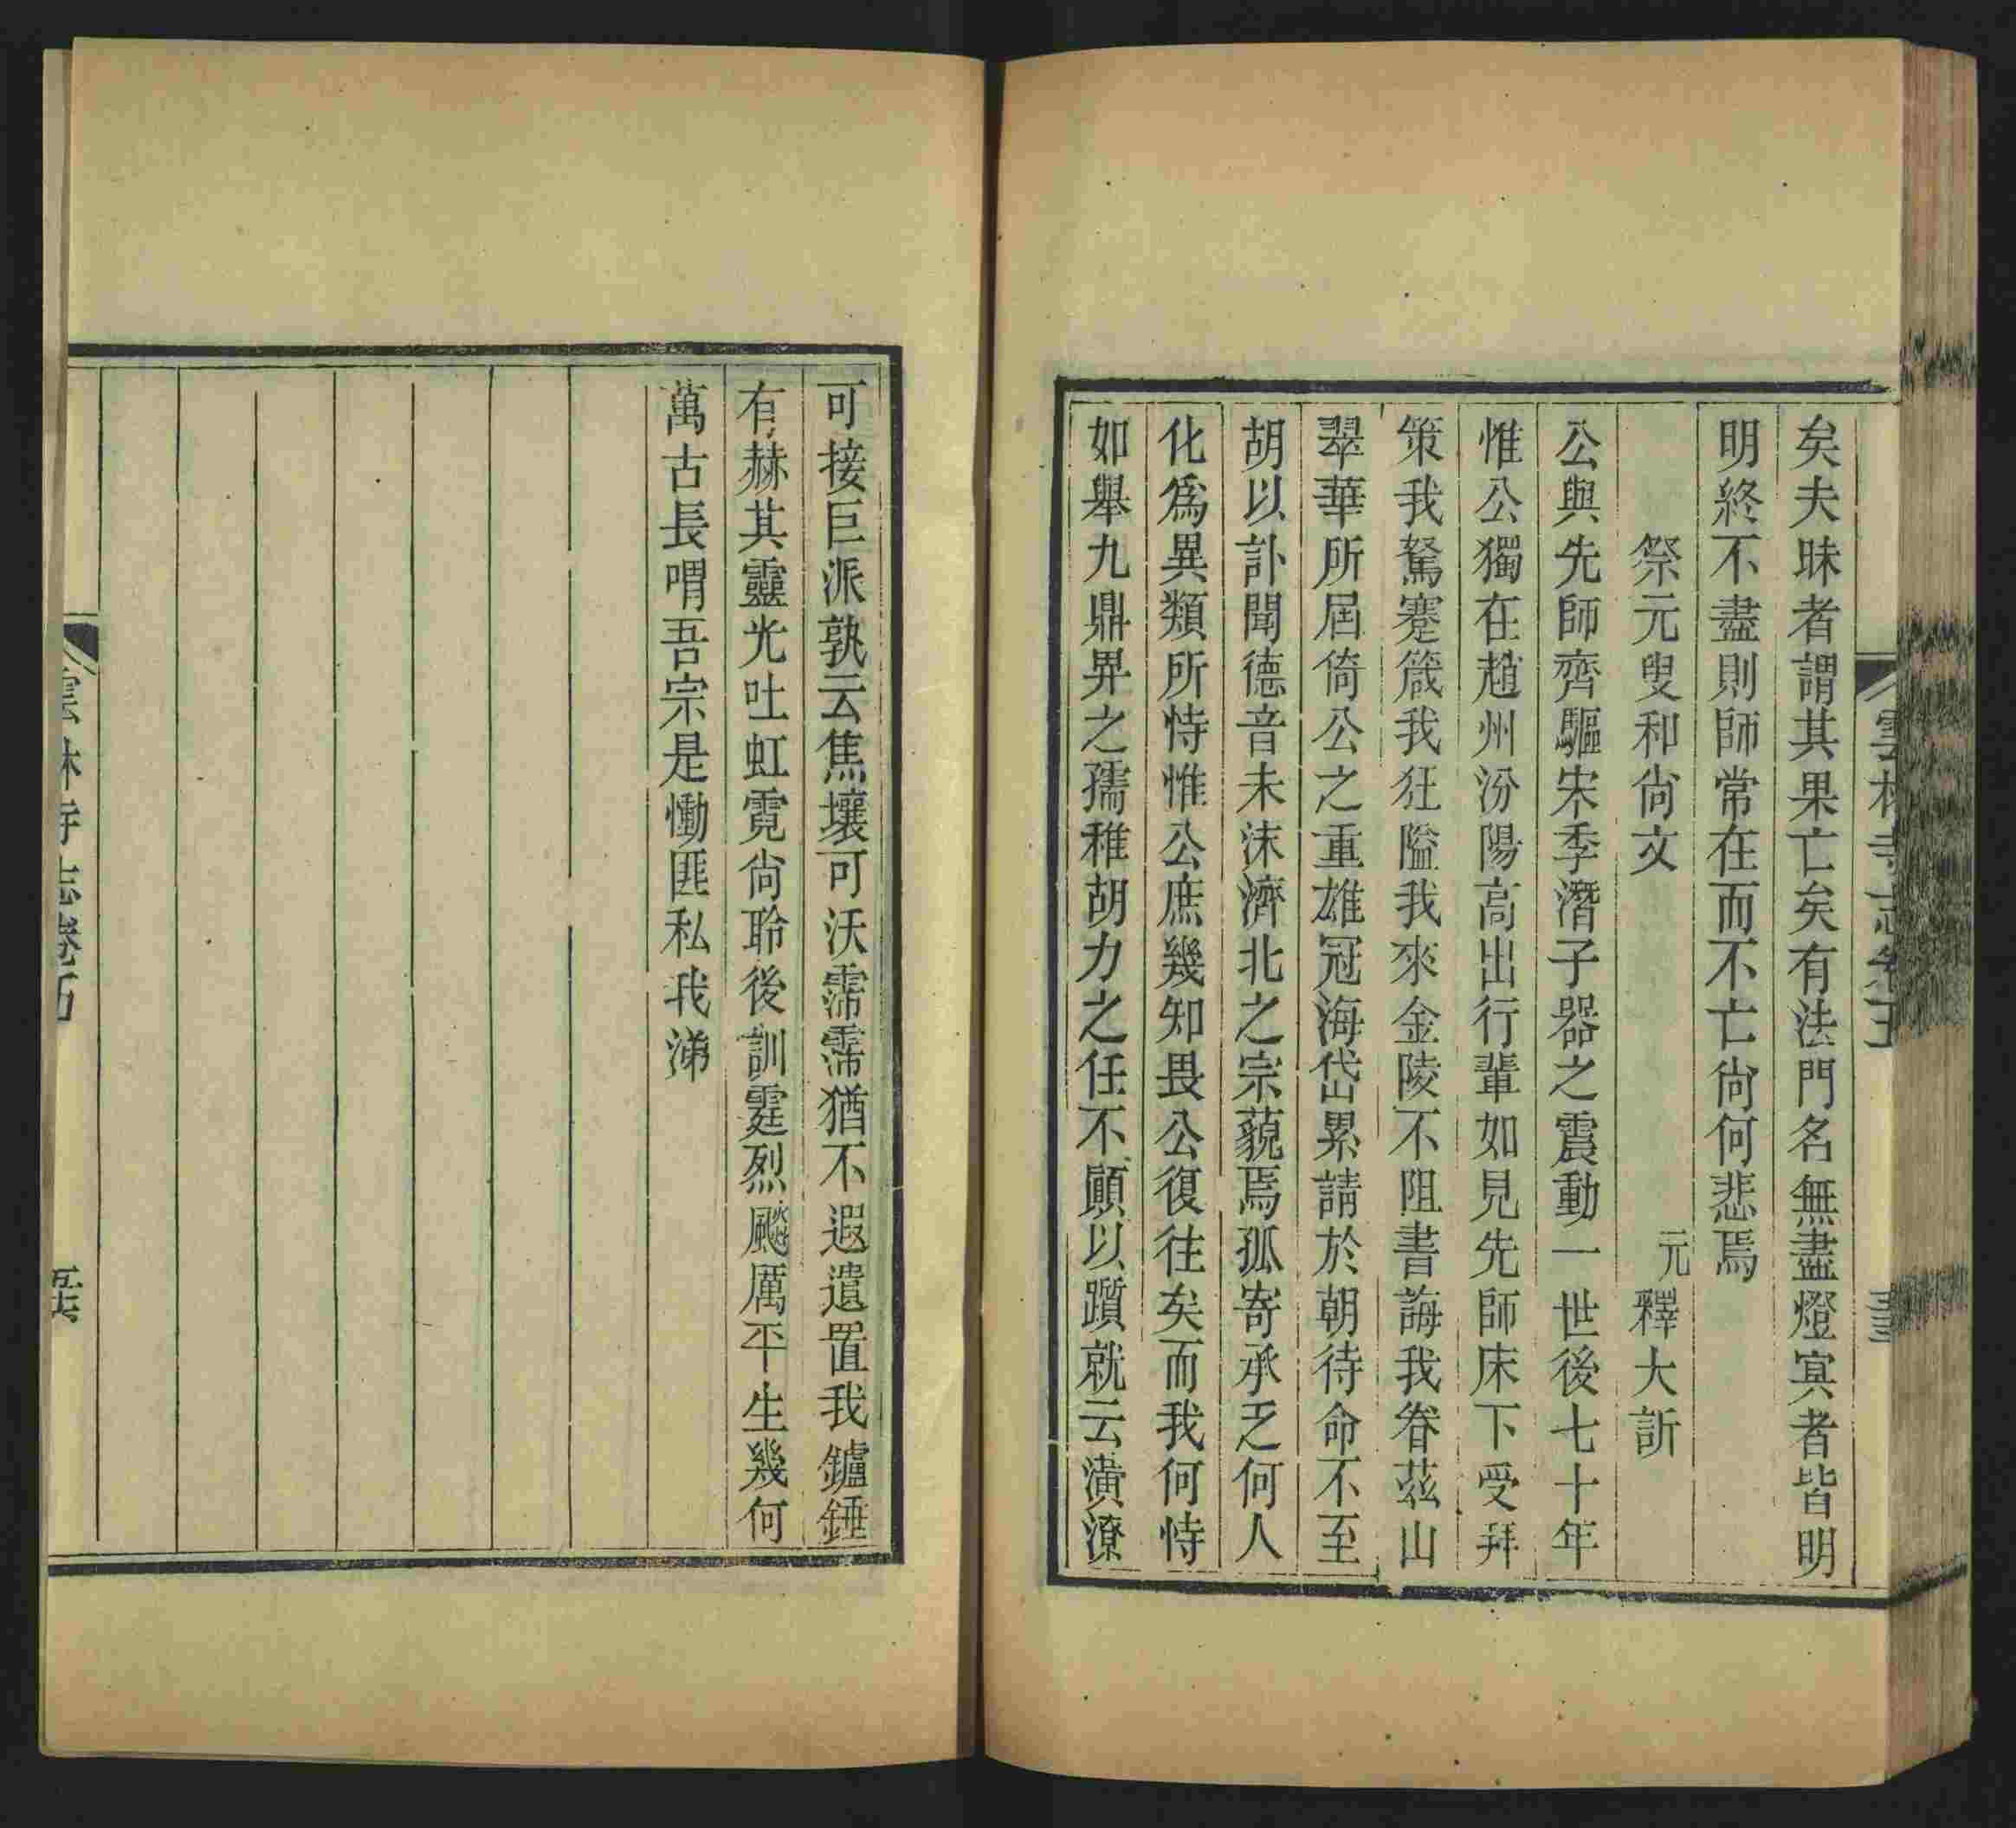 矣夫昧者謂其果亡矣有法門名無盡燈冥者皆明
明終不盡則師常在而不亡尚何悲焉
祭元叟和尚文
元釋大訢
公與先師齊驅宋季潛子器之震動一世後七十年
惟公獨在趙州汾陽高出行輩如見先師床下受拜
策我駑蹇箴我狂隘我來金陵不阻書誨我眷茲山
翠華所屆倚公之重雄冠海岱累請於朝待命不至
胡以訃聞德音未沬濟北之宗藐焉孤寄承乏何人
化爲異類所恃惟公庶幾知畏公復往矣而我何恃
如舉九鼎畀之孺稚胡力之任不顚以躓就云潢潦
可接巨派孰云焦壤可沃霈霈猶不遐遺置我鑪錘
有赫其靈光吐虹霓尚聆後訓霆烈飈厲平生幾何
萬古長喟吾宗是慟匪私我涕
雲林寺志卷五